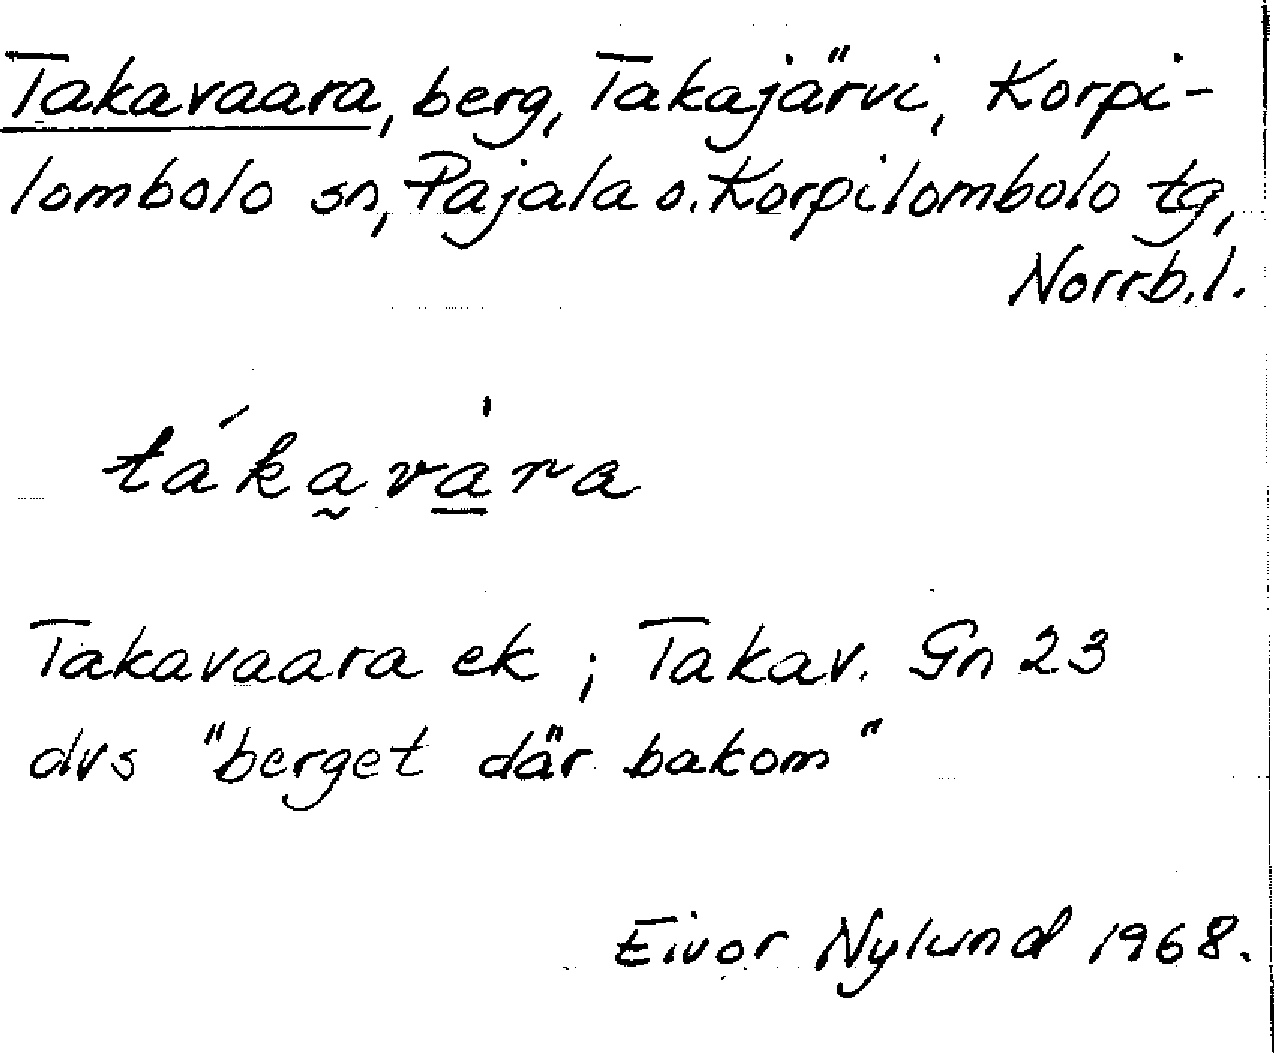 Takavaara, berg, Takajärvi, Korpi-
lombolo sn, Pajala o. Korpilombolo tg,
Norrb. l.
táka̰va̱̍ra
Takavaara ek ; Takav. Gn 23
dvs "berget där bakom"
Eivor Nylund 1968.